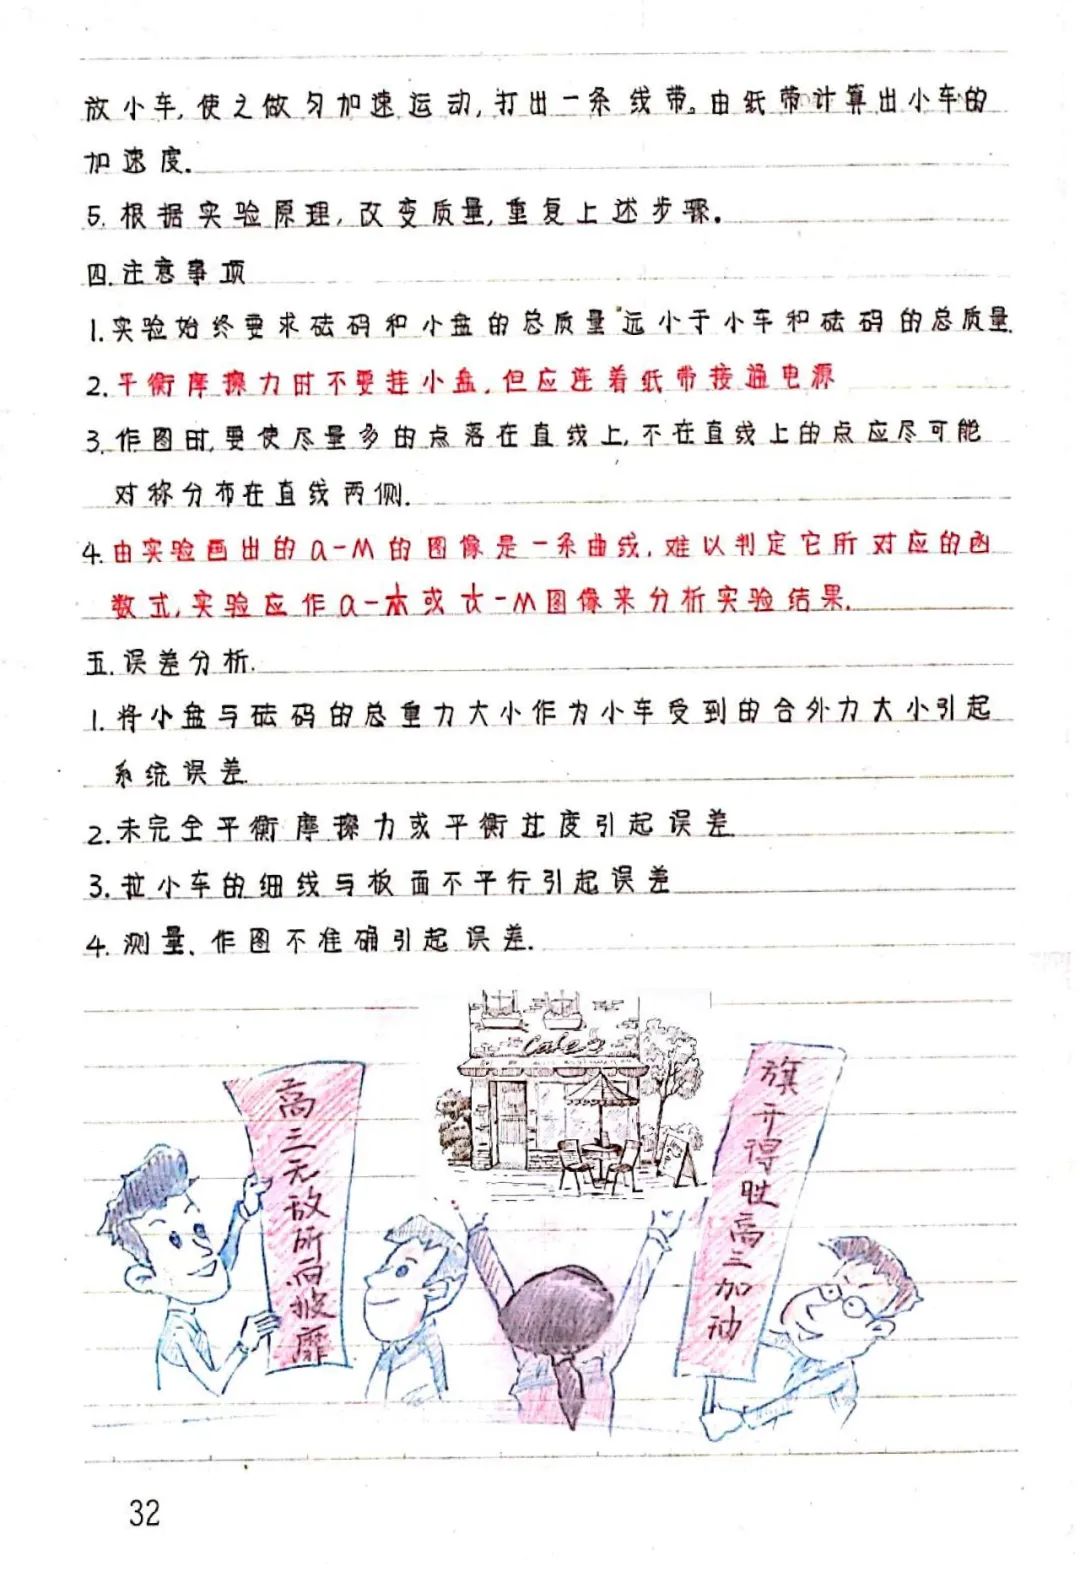 放小车,使之做匀加速运动,打出一条线带。由纸带计算出小车的
加速度.
5.根据实验原理,改变质量,重复上述步骤。
四.注意事项
1.实验始终要求砝码和小盘的总质量远小于小车和砝码的总质量.
2.平衡摩擦力时不要挂小盘,但应连着纸带接通电源
3.作图时,要使尽量多的点落在直线上,不在直线上的点应尽可能
对称分布在直线两侧.
4.由实验画出的a-M的图像是一条曲线,难以判定它所对应的函
数式,实验应作a-1/M或1/a-M图像来分析实验结果.
五.误差分析.
1.将小盘与砝码的总重力大小作为小车受到的合外力大小引起
系统误差
2.未完全平衡摩擦力或平衡过度引起误差
3.拉小车的细线与板面不平行引起误差
4.测量、作图不准确引起误差.
Cafe
高三无敌所向披靡
旗开得胜高三加油
32